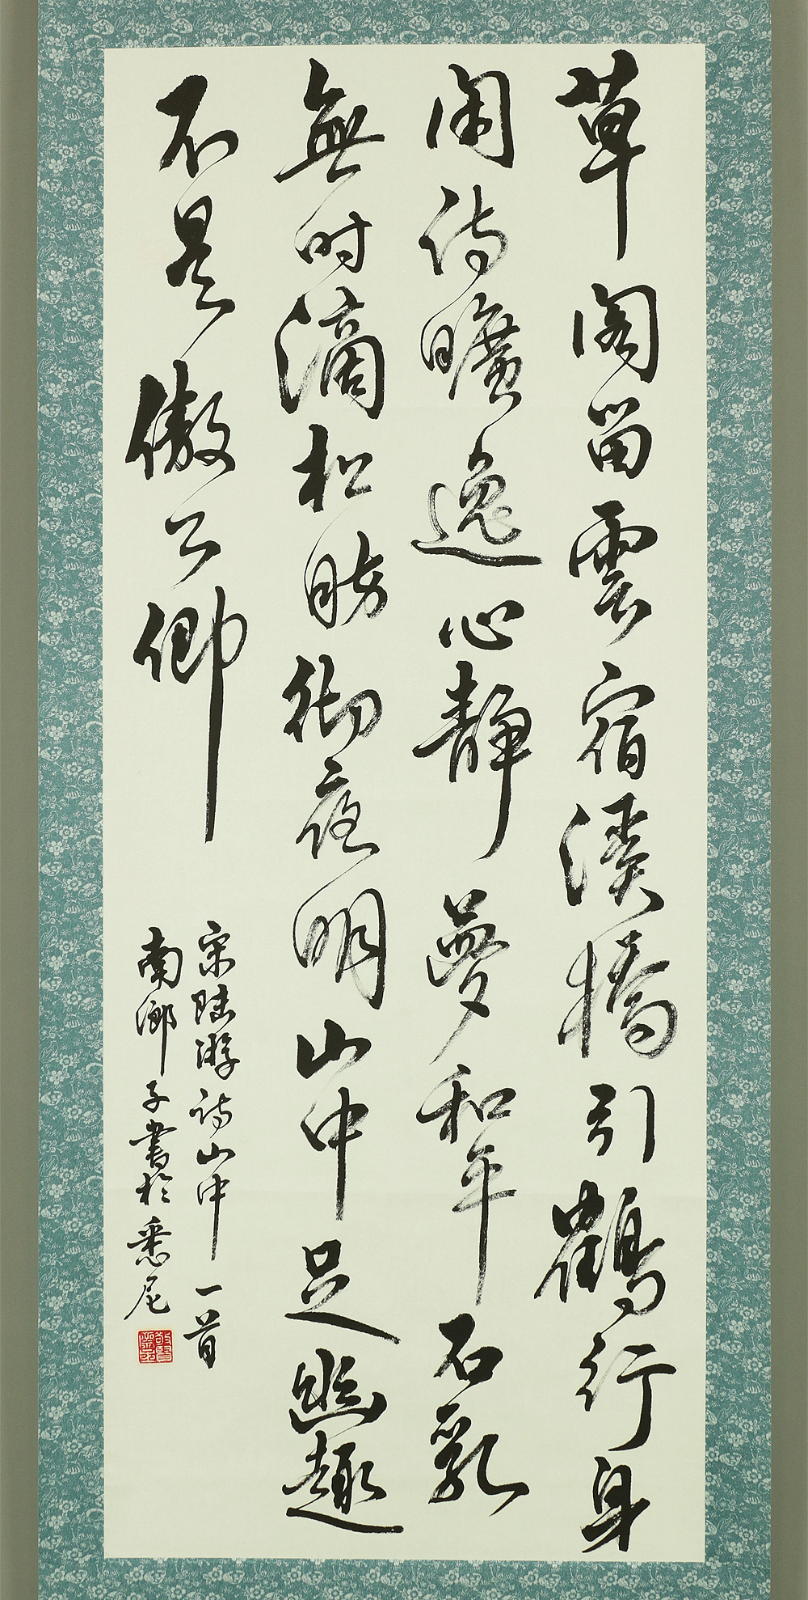 草閣留雲宿溪橋引鶴行身
閑詩曠逸心靜夢和平石乳
無時滴松肪徹夜明山中足幽趣
不是傲公卿
宋陸游詩山中一首
南鄉子書於悉尼